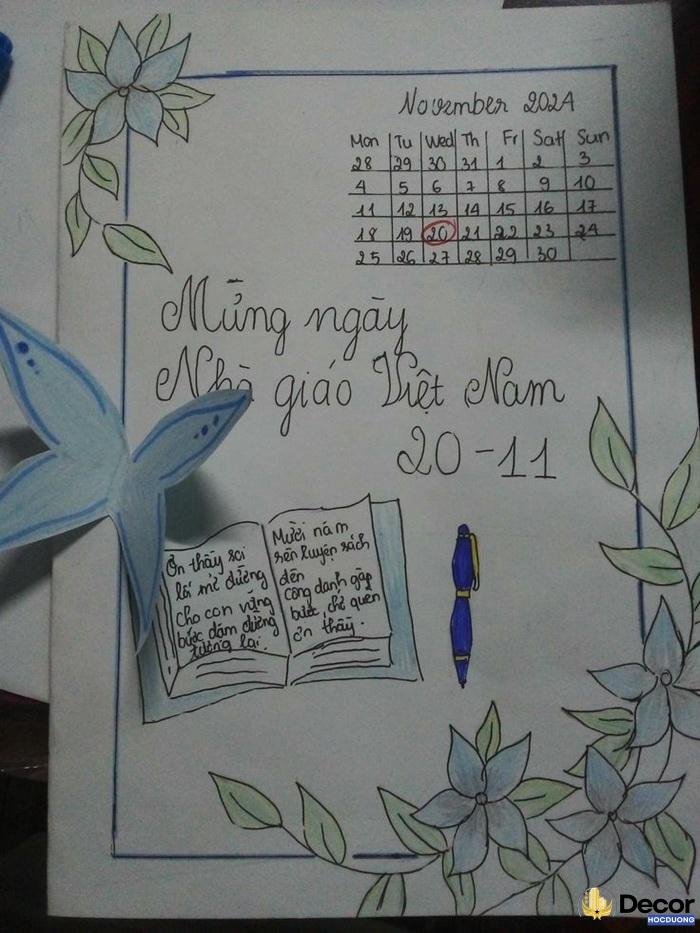 November 2024
Mon Tu Wed Th Fr Sat Sun
28 29 30 31 1 2 3
4 5 6 7 8 9 10
11 12 13 14 15 16 17
18 19 20 21 22 23 24
25 26 27 28 29 30
Mừng ngày
Nhà giáo Việt Nam
20-11
Ơn thầy soi
lối mở đường
cho con vững
bước dặm đường
tương lai.
Mười năm
rèn luyện sách
đèn
công danh gặp
bước, chớ quên
ơn thầy.
Decor
HOCDUONG